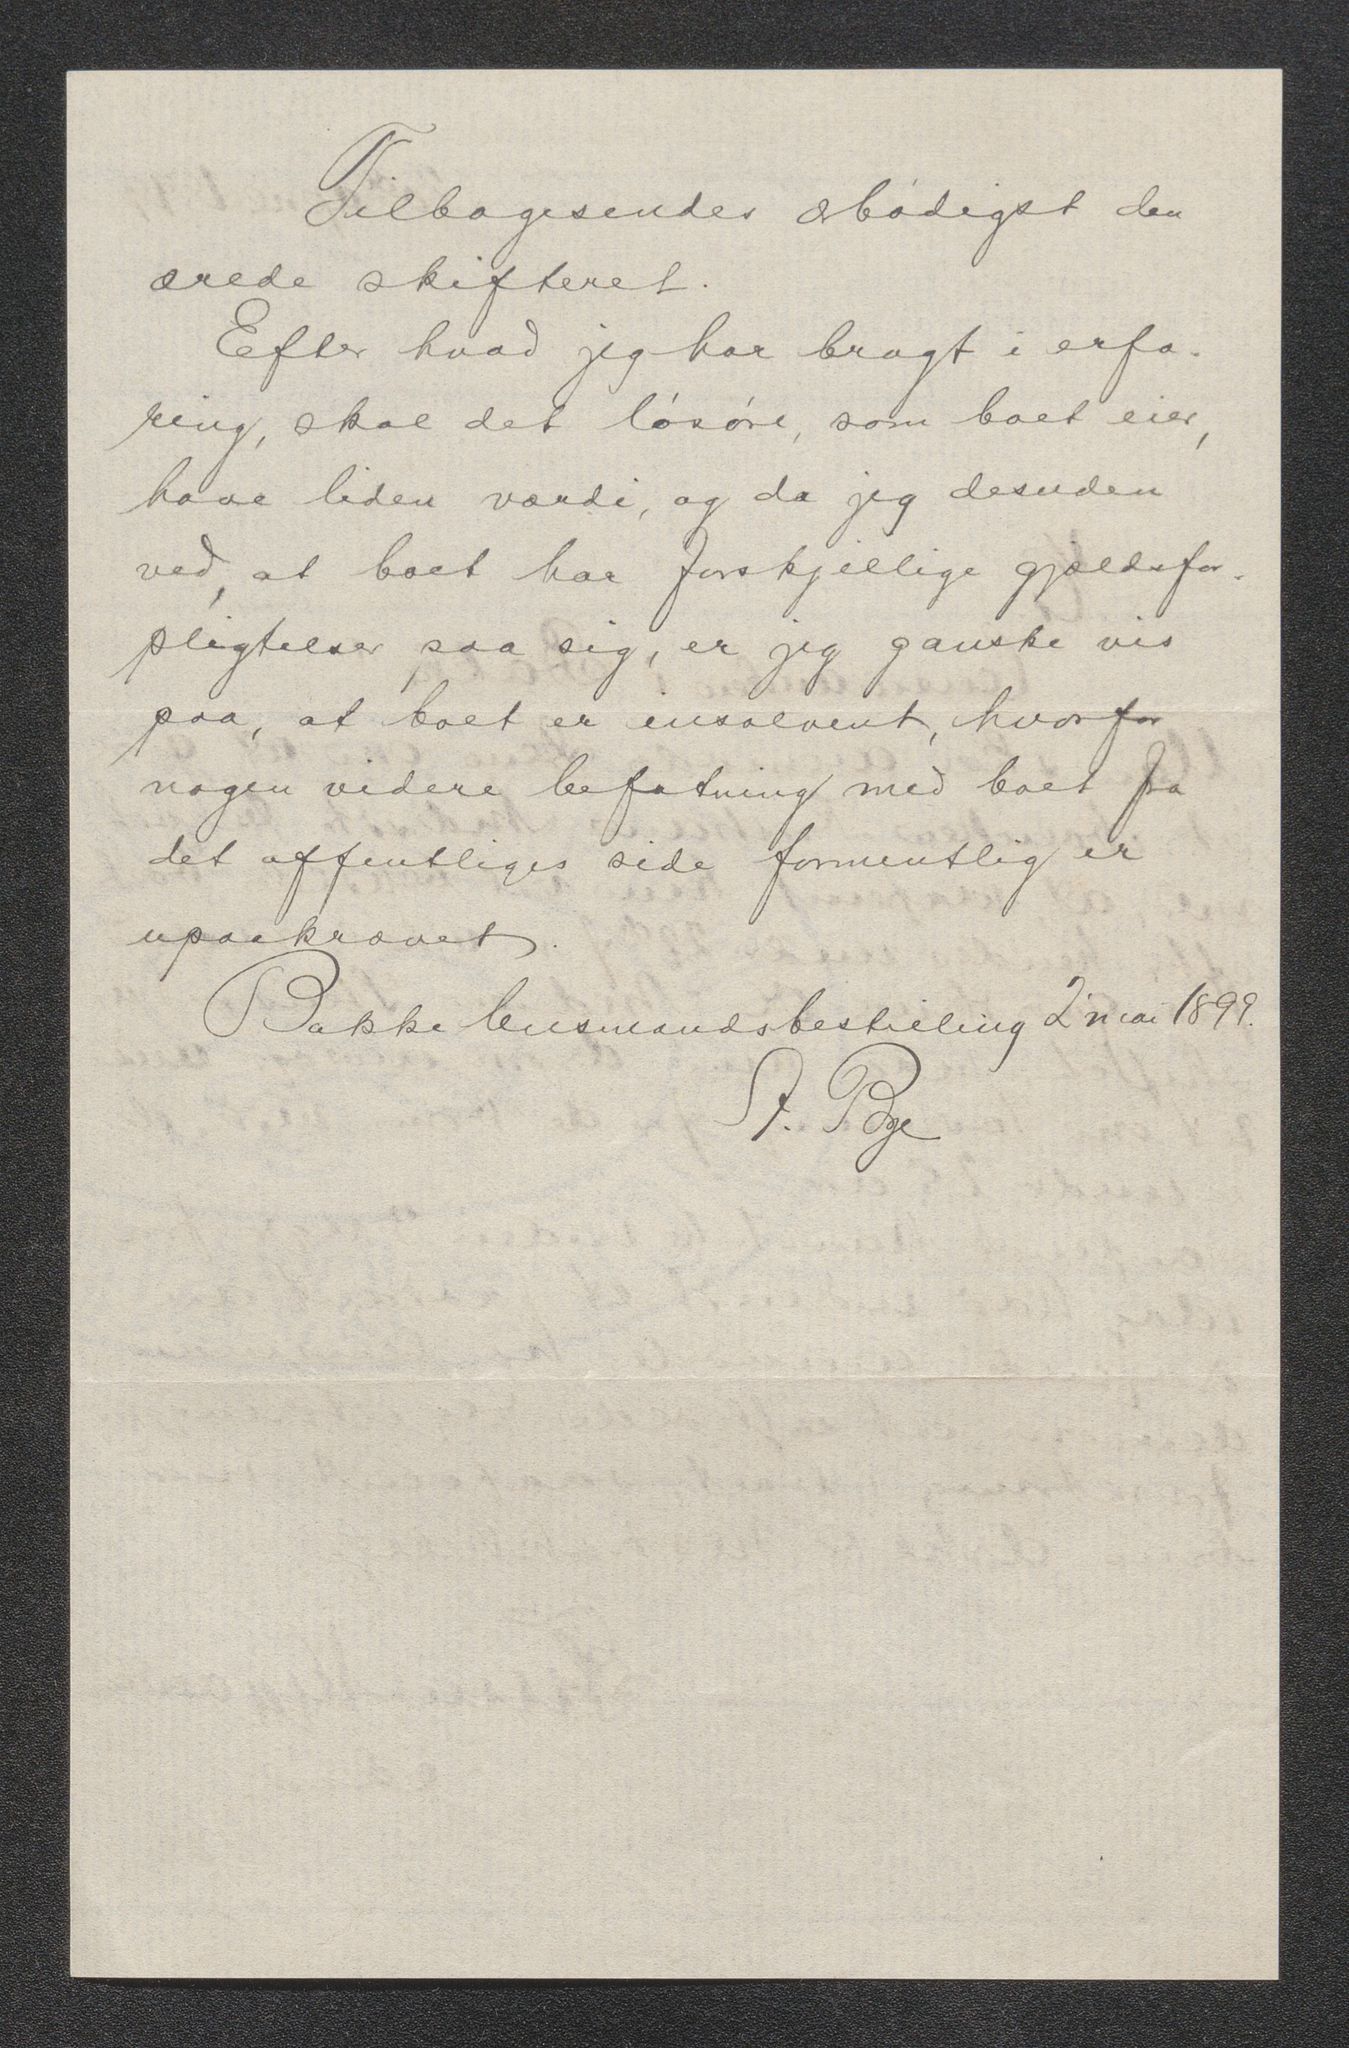 Tilbagesendes ærbødigst den
ærede skifteret.
Efter hvad jeg har bragt i erfa-
ring, skal det løsøre, som boet eier,
have liden værdi, og da jeg desuden
ved, at boet har forskjellige gjældsfor-
pligtelser paa sig, er jeg ganske vis
paa, at boet er insolvent, hvorfor
nogen videre befatning med boet fra
det offentliges side formentlig er
upaakrævet.
Bakke lensmandsbestilling 2 mai 1899.
St. Bge